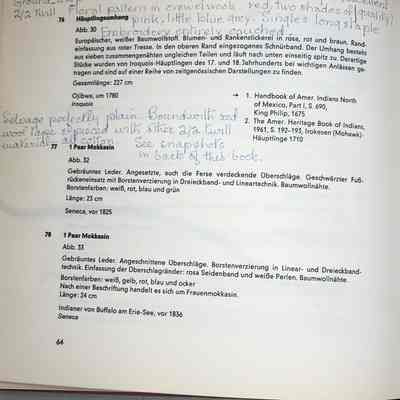 2/2 Twill Floral pattern in crewel work. red, two shades of
pink, little blue grey. Singles long staple
Embroidery entirely couched
76 Häuptlingsumhang
Abb. 30
Europäischer, weißer Baumwollstoff. Blumen- und Rankenstickerei in rosa, rot und braun. Rand-
einfassung aus roter Tresse. In den oberen Rand eingezogenes Schnürband. Der Umhang besteht
aus sieben zusammengenähten ungleichen Teilen und läuft nach unten einseitig spitz zu. Derartige
Stücke wurden von Iroquois-Häuptlingen des 17. und 18. Jahrhunderts bei wichtigen Anlässen ge-
tragen und sind auf einer Reihe von zeitgenössischen Darstellungen zu finden.
Gesamtlänge: 227 cm
Ojibwa, um 1780
Iroquois
→ 1. Handbook of Amer. Indians North
of Mexico, Part I, S. 690,
King Philip, 1675
2. The Amer. Heritage Book of Indians,
1961, S. 192–193, Irokesen (Mohawk)-
Häuptlinge 1710
Selvage perfectly plain. Bound with red
wool tape replaced with other 2/2 twill
material at
See snapshots
in back of this book.
77 1 Paar Mokkasin
Abb. 32
Gebräuntes Leder. Angesetzte, auch die Ferse verdeckende Überschläge. Geschwärzter Fuß-
rückeneinsatz mit Borstenverzierung in Dreieckband- und Lineartechnik. Baumwollnähte.
Borstenfarben: weiß, rot, blau und grün
Länge: 23 cm
Seneca, vor 1825
78 1 Paar Mokkasin
Abb. 33
Gebräuntes Leder. Angeschnittene Überschläge. Borstenverzierung in Linear- und Dreieckband-
technik. Einfassung der Überschlagränder: rosa Seidenband und weiße Perlen. Baumwollnähte.
Borstenfarben: weiß, gelb, rot, blau und ocker
Nach einer Beschriftung handelt es sich um Frauenmokkasin.
Länge: 24 cm
Indianer von Buffalo am Erie-See, vor 1836
Seneca
64